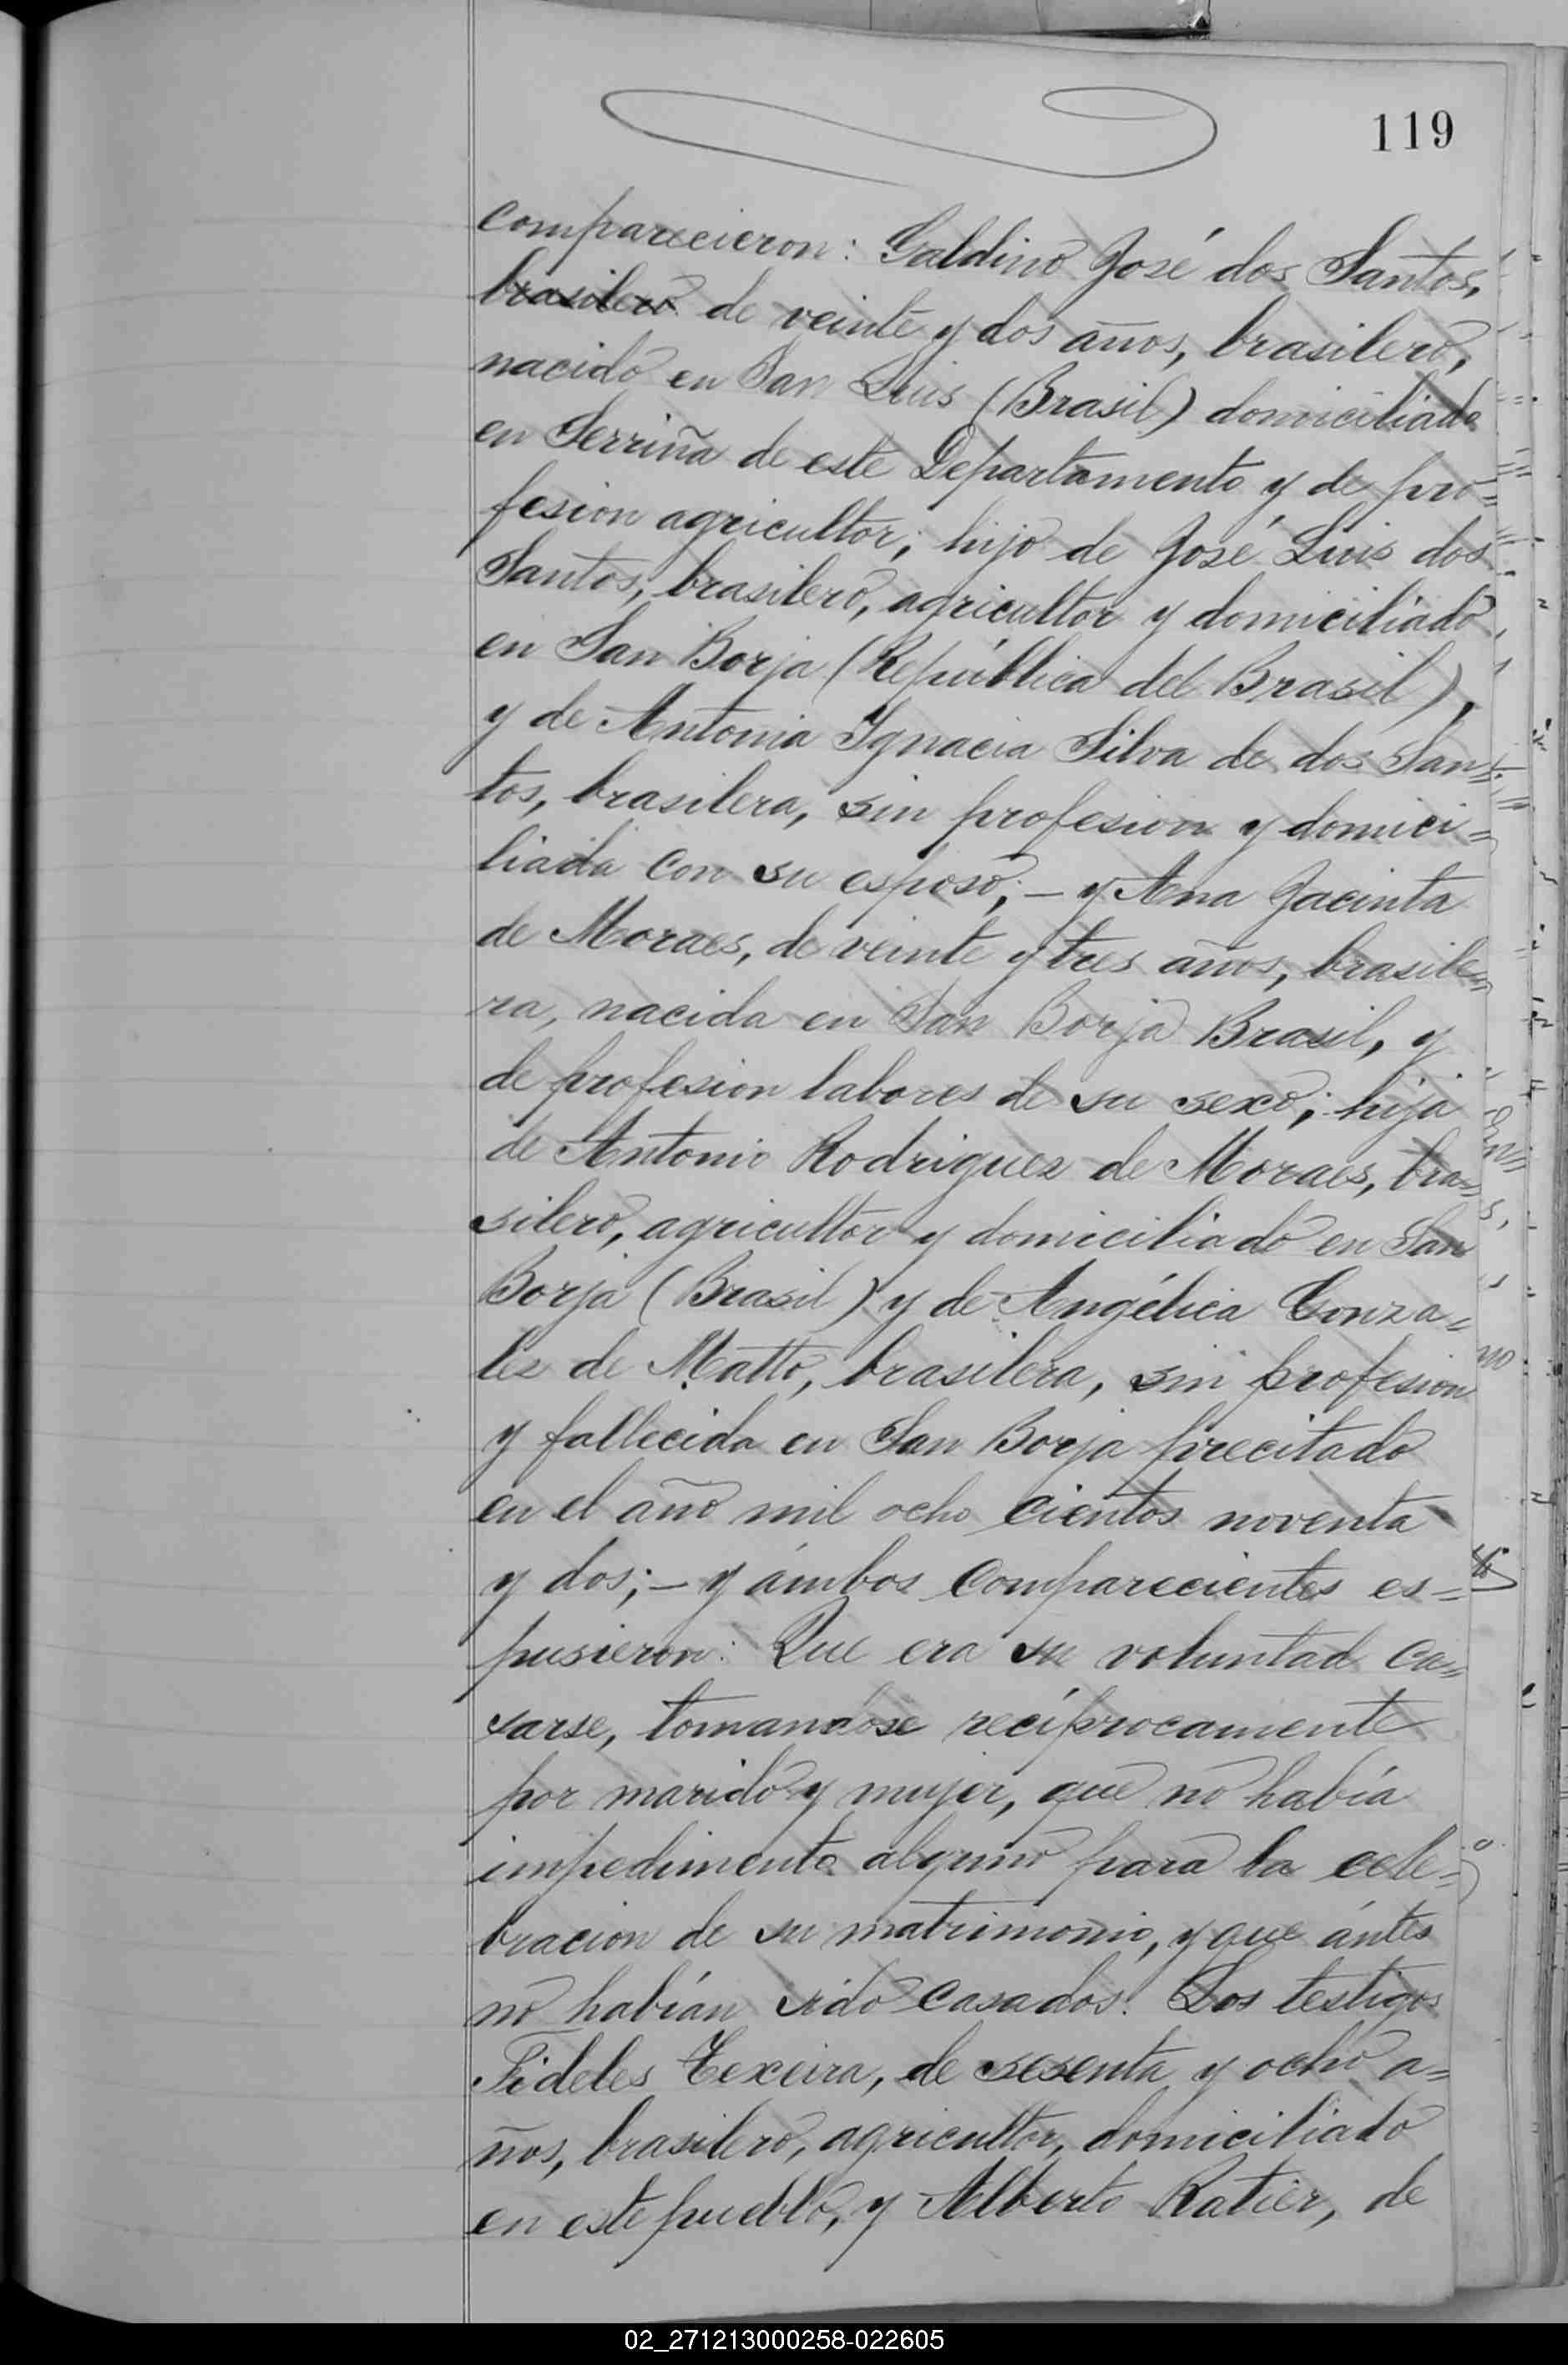 119
comparecieron: Galdino José dos Santos,
brasilero de veinte y dos años, brasilero,
nacido en San Luis (Brasil) domiciliado
en Serriña de este Departamento y de pro=
fesion agricultor; hijo de José Luis dos
Santos, brasilero, agricultor y domiciliado
en San Borja (República del Brasil),
y de Antonia Ygnacia Silva de dos San=
tos, brasilera, sin profesion y domici=
liada con su esposo; – y Ana Jacinta
de Moraes, de veinte y tres años, brasile=
ra, nacida en San Borja Brasil, y
de profesion labores de su sexo; hija
de Antonio Rodriguez de Moraes, bra=
silero, agricultor y domiciliado en San
Borja (Brasil) y de Angélica Gonza=
lez de Matto, brasilera, sin profesion
y fallecida en San Borja precitado
en el año mil ocho cientos noventa
y dos; – y ámbos comparecientes es=
pusieron: Que era su voluntad ca=
sarse, tomandose recíprocamente
por marido y mujer, que no había
impedimento alguno para la cele=
bracion de su matrimonio, y que ántes
no habían sido casados. Los testigos
Fideles Texeira, de sesenta y ocho a=
ños, brasilero, agricultor, domiciliado
en este pueblo, y Alberto Ratier, de
02_271213000258-022605